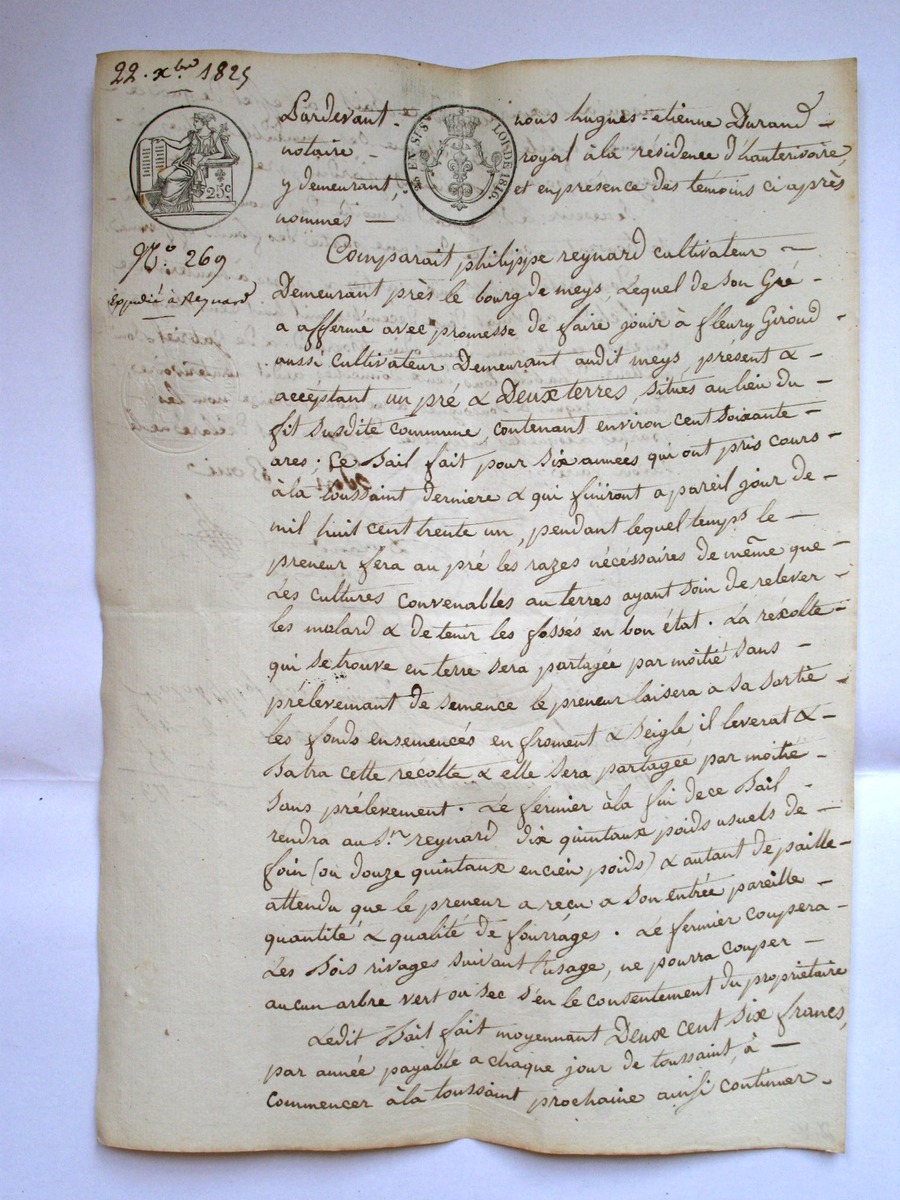 22. xbre 1825
Pardevant nous hugues-etienne Durand
notaire royal à la résidence d'hauterivoire,
y demeurant, et en présence des témoins ci après
nommés
25c
EN SUS
LOI DE 1816.
No. 269
Expédié à Reynard
Comparait philippe reynard cultivateur
Demeurant près le bourg de meys, Lequel de son Gré
a affermé avec promesse de faire jouir à fleury Giroud
aussi cultivateur Demeurant audit meys, présent &
accéptant un pré & Deux terres, situés au lieu du
fit susdite commune, contenant environ cent soixante
ares; Ce Bail fait pour six années qui ont pris cours
à la toussaint derniere & qui finiront a pareil jour de
mil huit cent trente un, pendant lequel temps le
preneur fera au pré les razes nécessaires de même que
Les cultures convenables au terres ayant soin de relever
les molard & de tenir les fossés en bon état. La récolte
qui se trouve en terre sera partagée par moitié sans
prélevemant de semence le preneur laisera a sa sortie
les fonds ensemencés en froment & seigle il leverat &
Batra cette récolte & elle sera partagée par moitié
sans prélevement. Le fermier à la fin de ce Bail
rendra au Sr. reynard dix quintaux poids usuels de
foin (ou douze quintaux encien poids) & autant de paille
attendu que le preneur a reçu a son entrée pareille
quantité & qualité de fourrages. Le fermier coupera
Les Bois rivages suivant l'usage, ne pourra couper
aucun arbre vert ou sec s'en le consentement du propriétaire
Ledit Bail fait moyennant Deux cent six francs,
par année payable a chaque jour de toussaint, à
commencer à la toussaint prochaine ainsi continuer